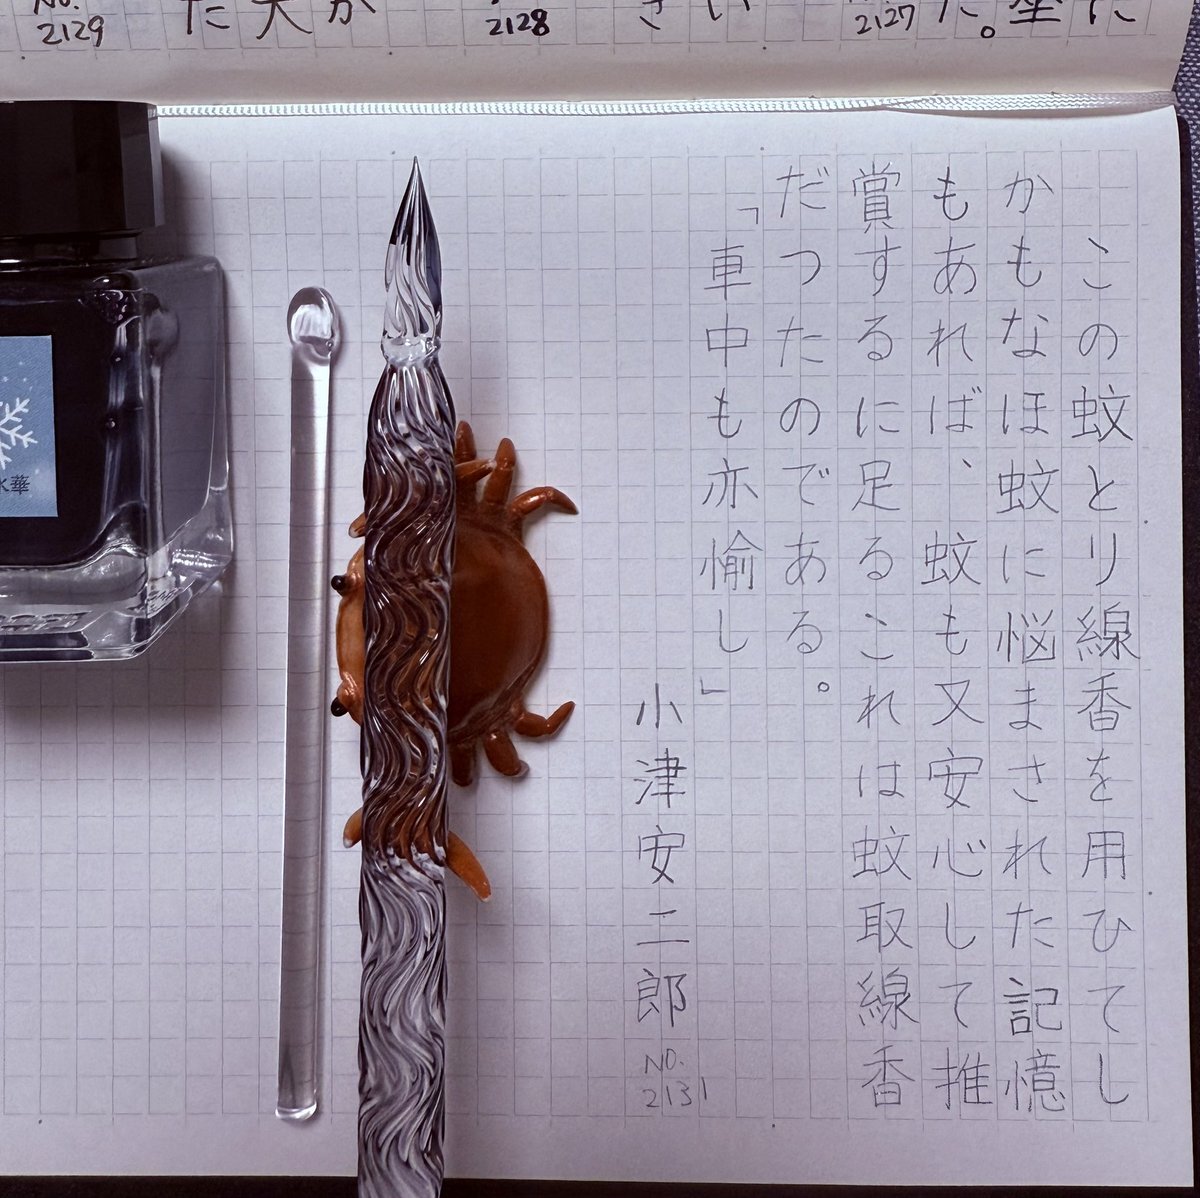 この蚊とり線香を用ひてし
かもなほ蚊に悩まされた記憶
もあれば、蚊も又安心して推
賞するに足るこれは蚊取線香
だつたのである。
「車中も亦愉し」
小津安二郎
NO.
2131
た。
NO.
2127
さい
2128
た大か
NO.
2129
氷華